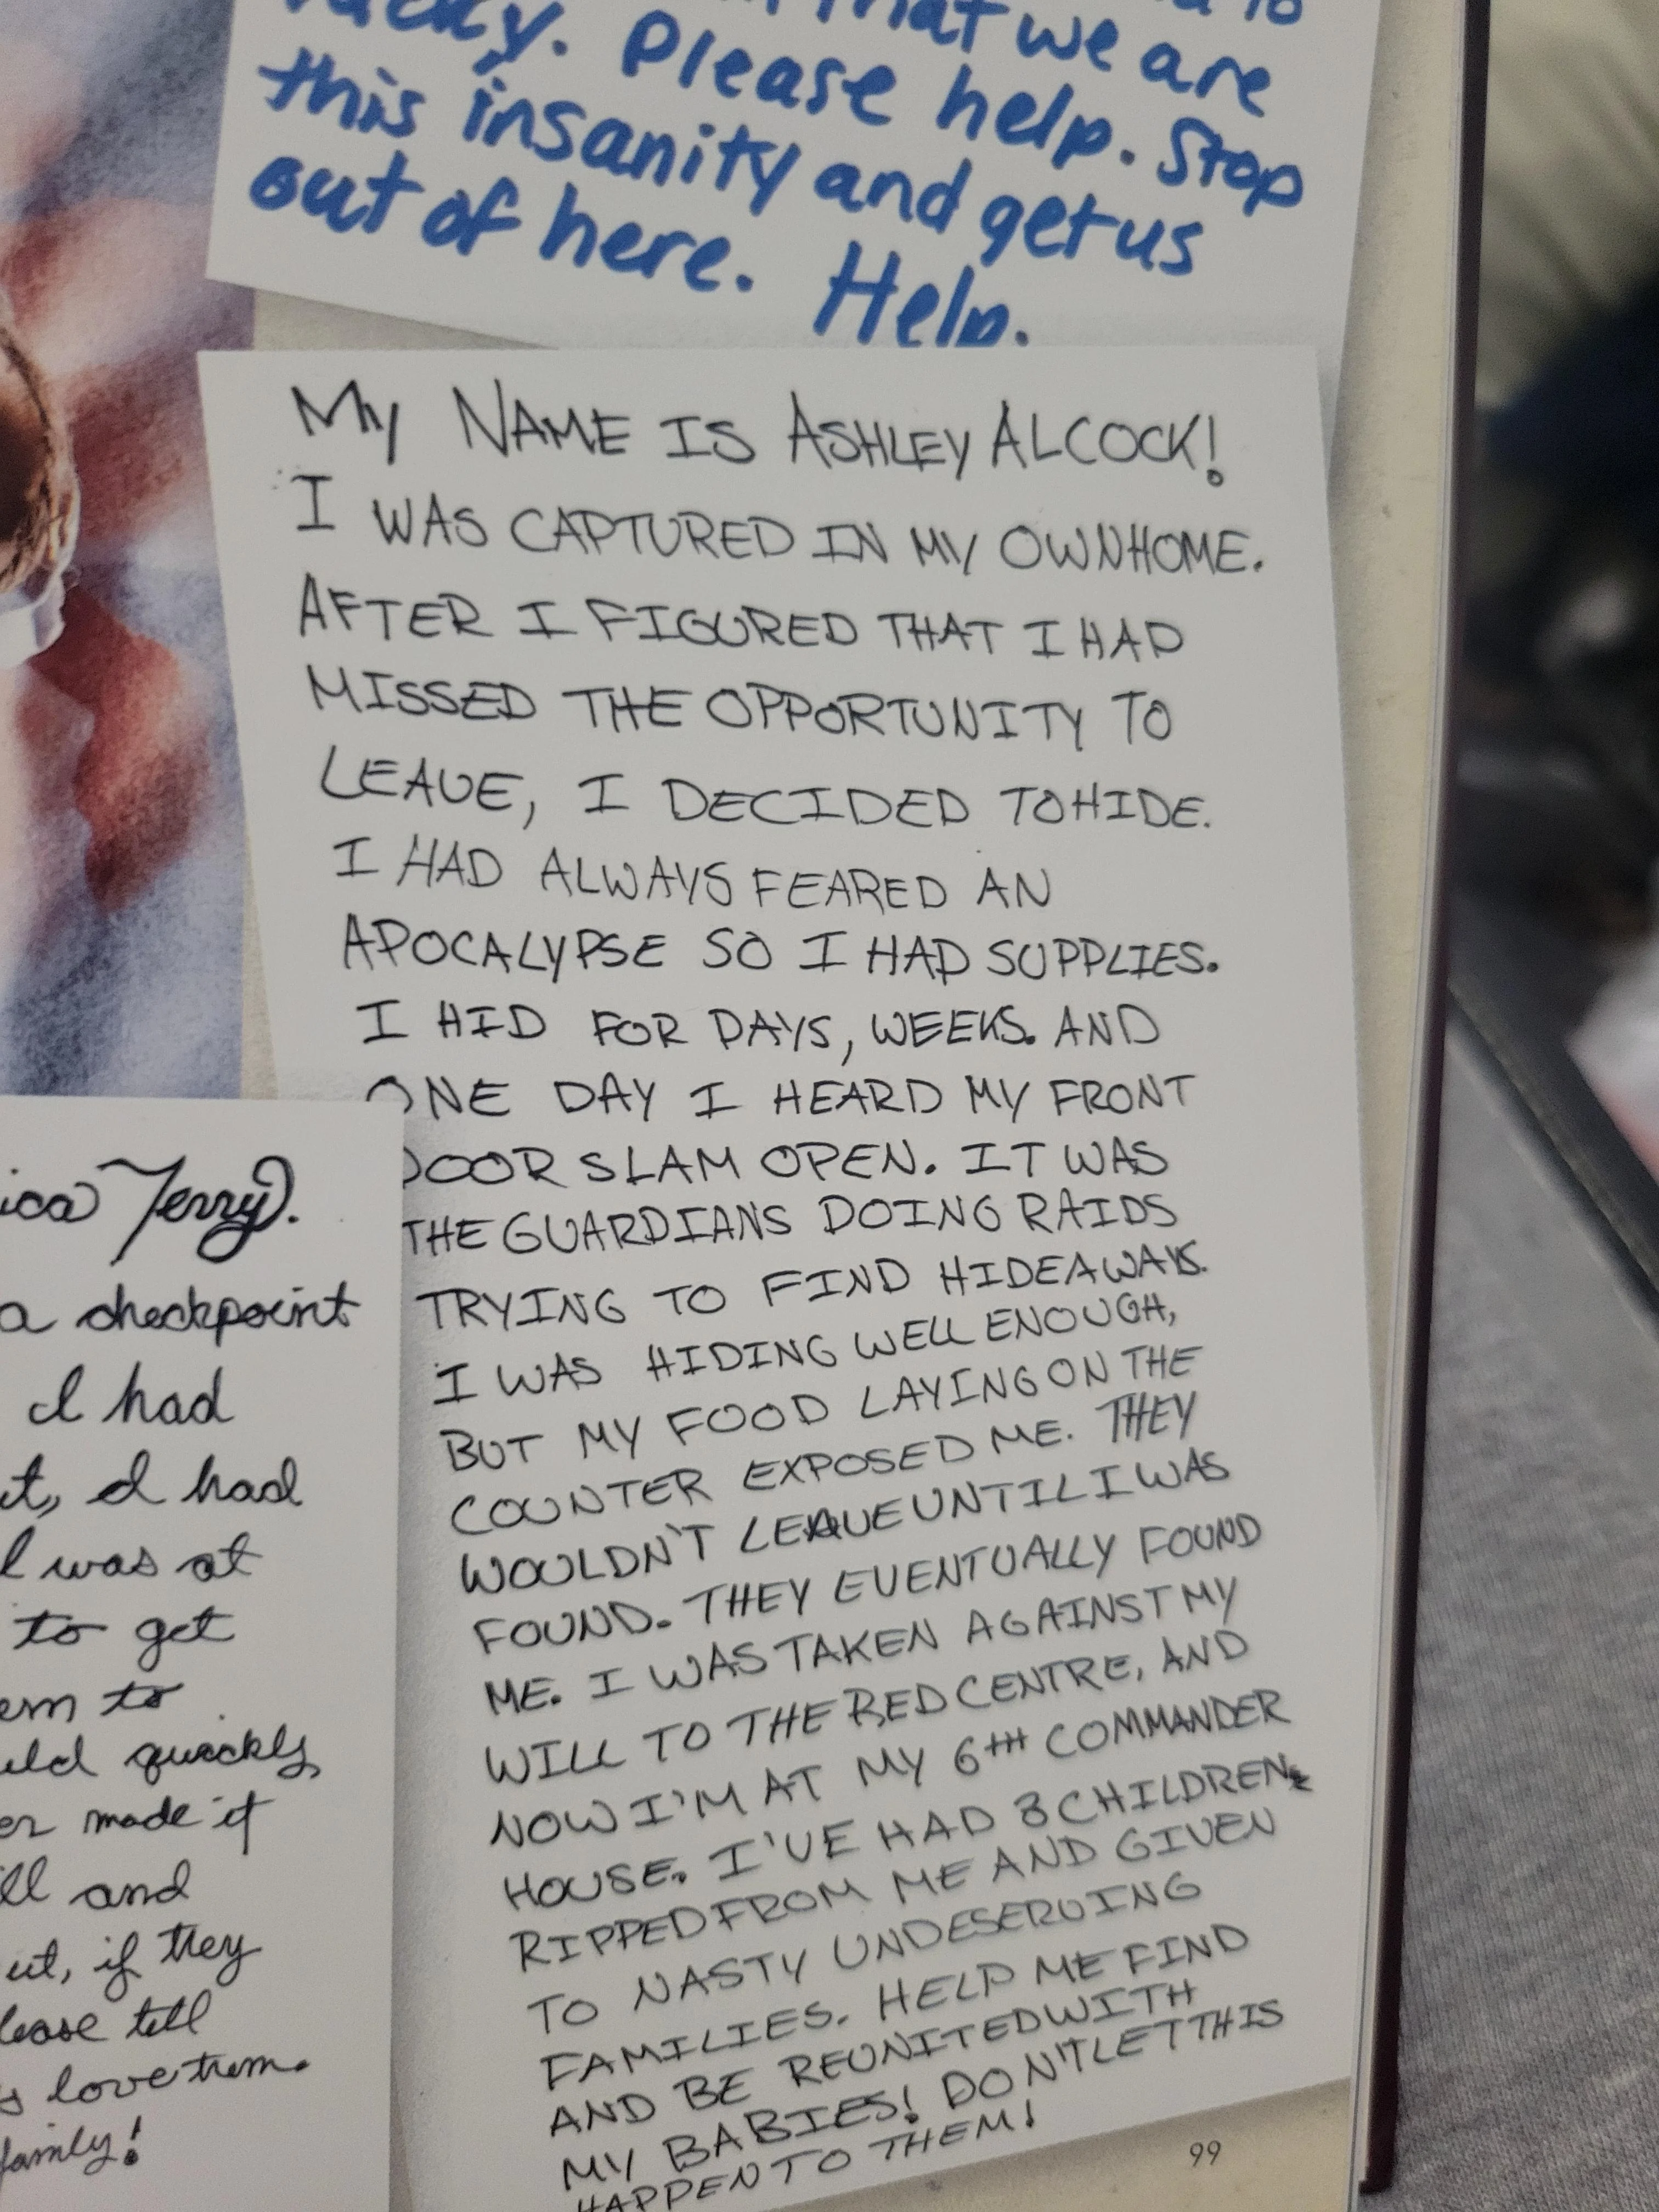 that we are
Please help. Stop
this insanity and get us
out of here. Help.
MY NAME IS ASHLEY ALCOCK!
I WAS CAPTURED IN MY OWN HOME.
AFTER I FIGURED THAT I HAD
MISSED THE OPPORTUNITY TO
LEAVE, I DECIDED TO HIDE.
I HAD ALWAYS FEARED AN
APOCALYPSE SO I HAD SUPPLIES.
I HID FOR DAYS, WEEKS. AND
ONE DAY I HEARD MY FRONT
DOOR SLAM OPEN. IT WAS
THE GUARDIANS DOING RAIDS
TRYING TO FIND HIDEAWAYS.
I WAS HIDING WELL ENOUGH,
BUT MY FOOD LAYING ON THE
COUNTER EXPOSED ME. THEY
WOULDN'T LEAVE UNTIL I WAS
FOUND. THEY EVENTUALLY FOUND
ME. I WAS TAKEN AGAINST MY
WILL TO THE RED CENTRE, AND
NOW I'M AT MY 6TH COMMANDER
HOUSE. I'VE HAD 3 CHILDREN
RIPPED FROM ME AND GIVEN
TO NASTY UNDESERVING
FAMILIES. HELP ME FIND
AND BE REUNITED WITH
MY BABIES! DON'T LET THIS
HAPPEN TO THEM!
Terry.
a checkpoint
I had
I had
I was at
to get
to
quickly
made it
and
if they
tell
love them.
family!
99